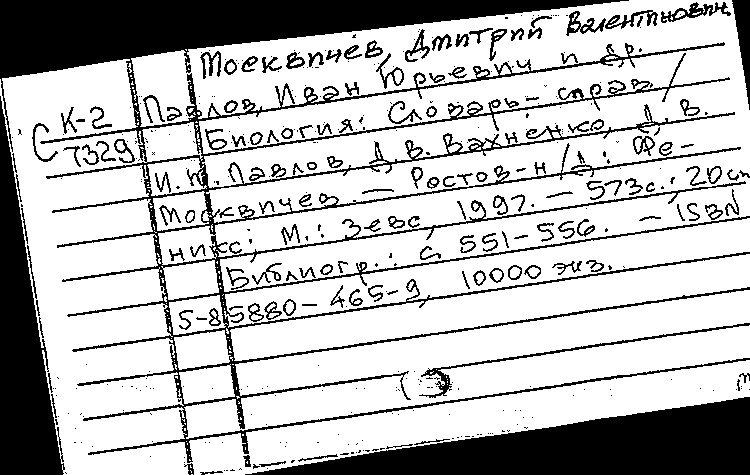 Москвичёв, Дмитрий Валентинович
К-2 Павлов, Иван Юрьевич и др.
С 7329 Биология: Словарь-справ /
И.Ю. Павлов, Д.В. Вахненко, Д.В.
Москвичёв. — Ростов-н/Д: Фе-
никс; М.: Зевс, 1997. — 573с.; 20см
Библиогр.: с. 551-556. — ISBN
5-85880-465-9, 10000 экз.